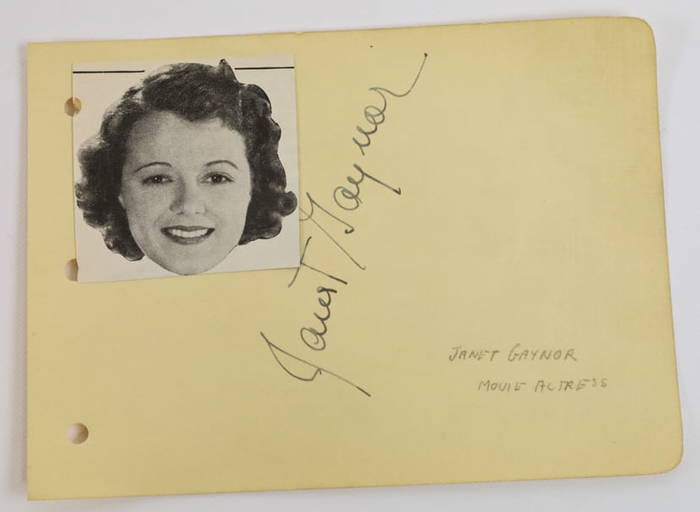 Janet Gaynor
JANET GAYNOR
MOVIE ACTRESS